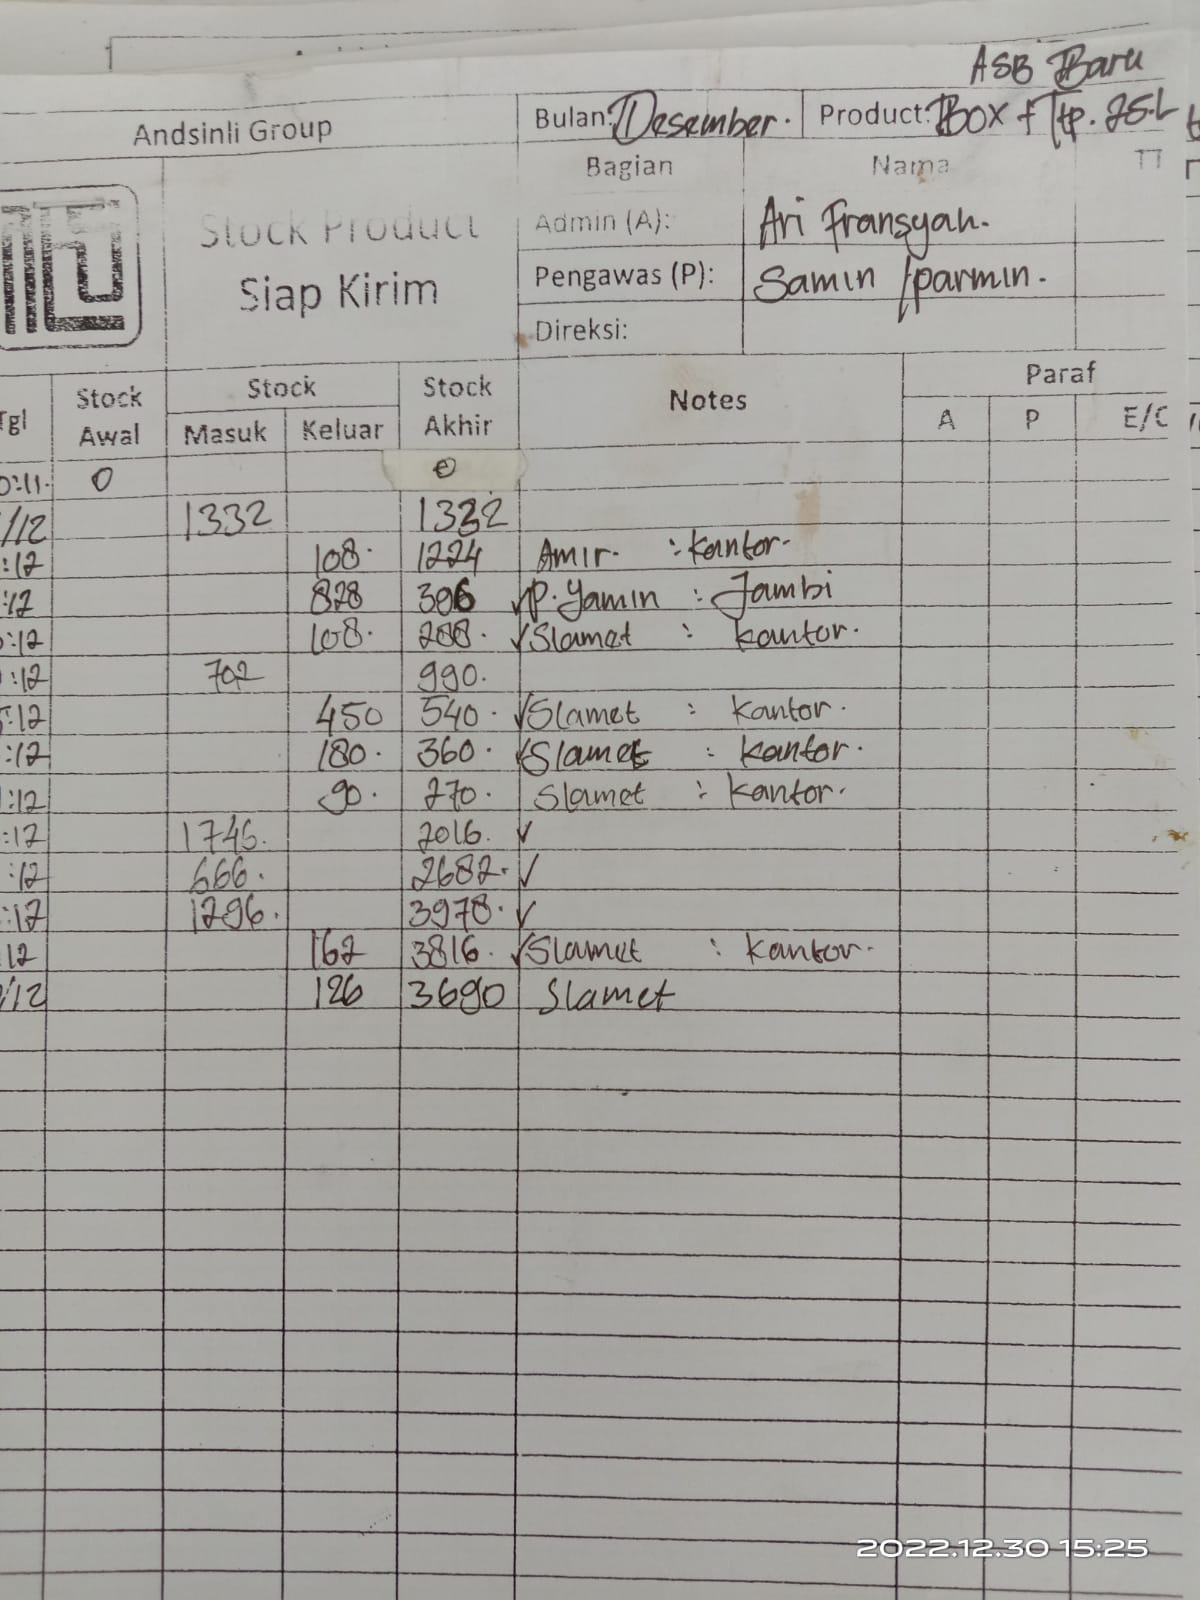 ASB Baru
Andsinli Group Bulan: Desember. Product: Box + Ttp. 25.L
Bagian Nama TT
Stock Product Admin (A): Ari Fransyah.
Siap Kirim Pengawas (P): Samin / parmin.
Direksi:
Tgl Stock Awal Stock Masuk Keluar Stock Akhir Notes Paraf A P E/C
0:11. 0 0
/12 1332 1332
:12 108. 1224 Amir. : kantor.
:12 828 396 ✓ P. Yamin : Jambi
:12 108. 288. ✓ Slamet : kantor.
:12 702 990.
:12 450 540. ✓ Slamet : kantor.
:12 180. 360. ✓ Slamet : kantor.
:12 90. 270. Slamet : kantor.
:12 1746. 2016. ✓
:12 666. 2682. ✓
:12 1296. 3978. ✓
12 162 3816. ✓ Slamet : kantor.
/12 126 3690 Slamet
2022.12.30 15:25